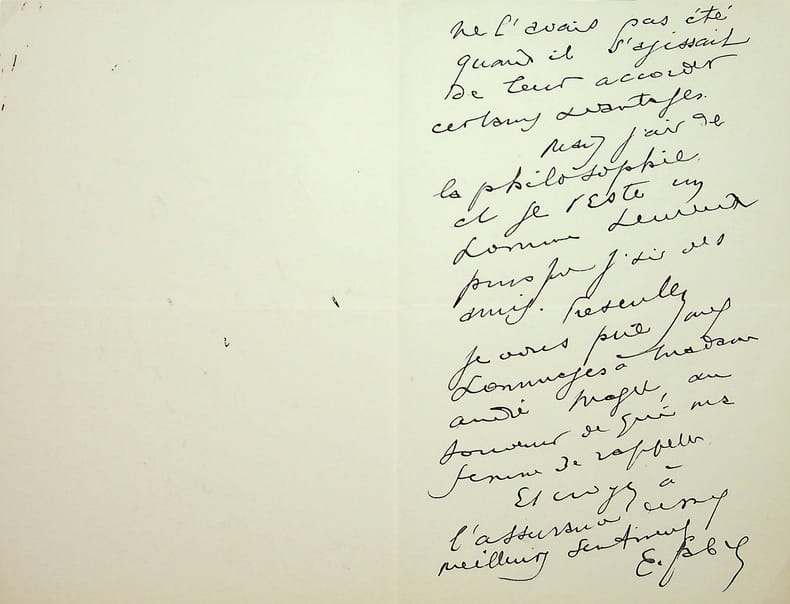 ne l'avais pas été
quand il s'agissait
de leur accorder
certains avantages.
Mais j'ai de
la philosophie
et je reste un
homme heureux
puisque j'ai des
amis. Presentez
je vous prie mes
hommages à Madame
André au
souvenir de qui ma
femme se rappelle
Et croyez à
l'assurance de mes
meilleurs sentiments
E.